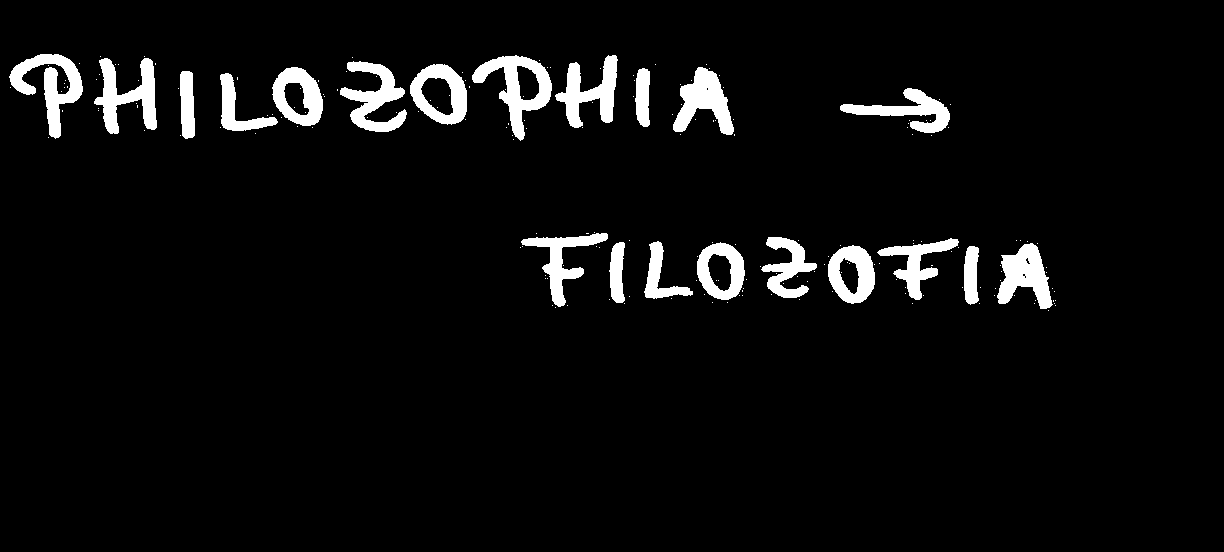 PHILOZOPHIA →
FILOZOFIA